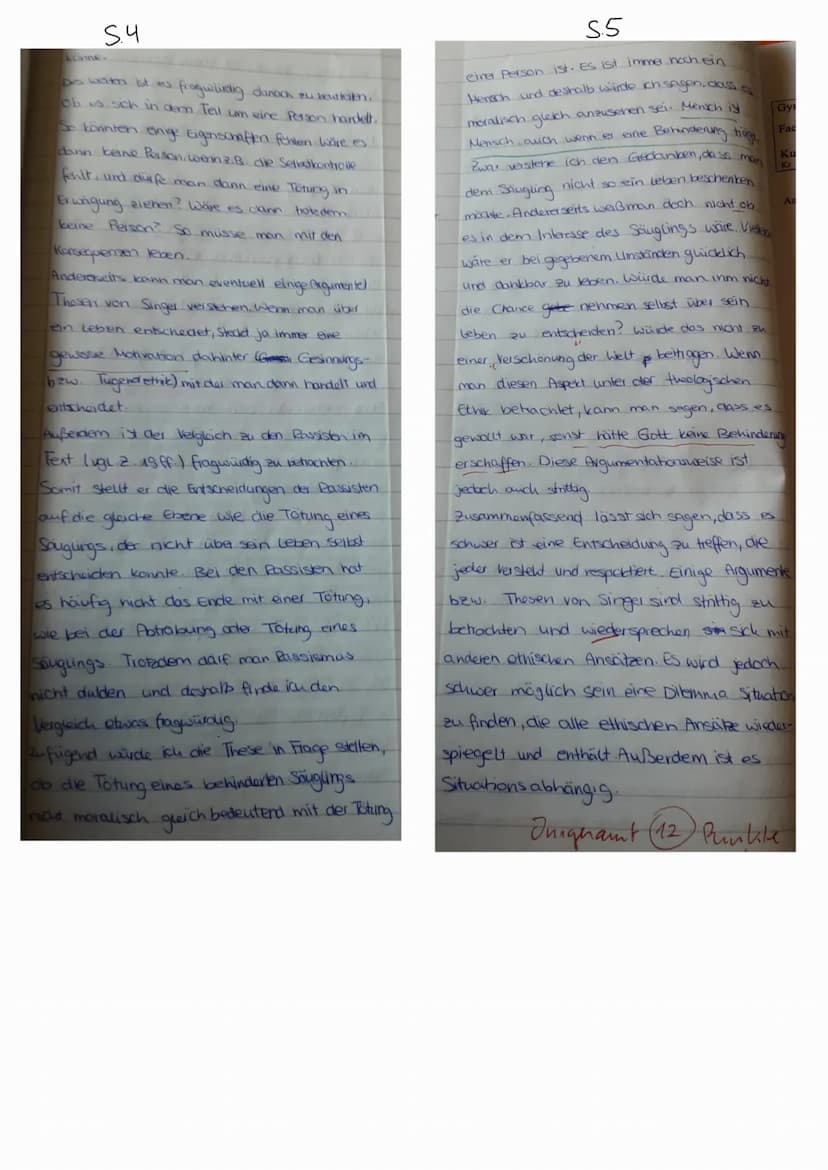 S.4
könne.
Des weiten ist es fragwürdig danach zu beurteilen,
ob es sich in dem Teil um eine Person handelt.
So könnten einige Eigenschaften fehlen wäre es
dann keine Person, wenn z.B. die Selbstkontrolle
fehlt, und dürfe man dann eine Tötung in
Erwägung ziehen? Wäre es dann trotzdem
keine Person? So müsse man mit den
Konsequenzen leben.
Andererseits kann man eventuell einige Argumente/
Thesen von Singer verstehen. Wenn man über
ein Leben entscheidet, steckt ja immer eine
gewisse Motivation dahinter (Gesinnungs-
bzw. Tugendethik) mit der man dann handelt und
entscheidet.
Außerdem ist der Vergleich zu den Rassisten im
Text (vgl. Z. 19ff.) fragwürdig zu betrachten.
Somit stellt er die Entscheidungen der Rassisten
auf die gleiche Ebene wie die Tötung eines
Säuglings, der nicht über sein Leben selbst
entscheiden konnte. Bei den Rassisten hat
es häufig nicht das Ende mit einer Tötung,
wie bei der Abtreibung oder Tötung eines
Säuglings. Trotzdem darf man Rassismus
nicht dulden und deshalb finde ich den
Vergleich etwas fragwürdig.
würde ich die These in Frage stellen,
ob die Tötung eines behinderten Säuglings
nicht moralisch gleich bedeutend mit der Tötung
S.5
einer Person ist. Es ist immer noch ein
Mensch und deshalb würde ich sagen, dass es
moralisch gleich anzusehen sei. Mensch ist
Mensch, auch wenn er eine Behinderung trägt.
Zwar verstehe ich den Gedanken, dass man
dem Säugling nicht so ein Leben bescheren
möchte. Andererseits weiß man doch nicht ob
es in dem Interesse des Säuglings wäre. Vielleicht
wäre er bei gegebenem Umständen glücklich
und dankbar zu leben. Würde man ihm nicht
die Chance nehmen selbst über sein
Leben zu entscheiden? Würde das nicht zu
einer „Verschönung der Welt beitragen. Wenn
man diesen Aspekt unter der theologischen
Ethik betrachtet, kann man sagen, dass es
gewollt war, sonst hätte Gott keine Behinderung
erschaffen. Diese Argumentationsweise ist
jedoch auch strittig.
Zusammenfassend lässt sich sagen, dass es
schwer ist eine Entscheidung zu treffen, die
jeder versteht und respektiert. Einige Argumente
bzw. Thesen von Singer sind strittig zu
betrachten und wiedersprechen sich mit
anderen ethischen Ansätzen. Es wird jedoch
schwer möglich sein eine Dilemma Situation
zu finden, die alle ethischen Ansätze wieder-
spiegelt und enthält. Außerdem ist es
Situationsabhängig.
Insgesamt 12 Punkte